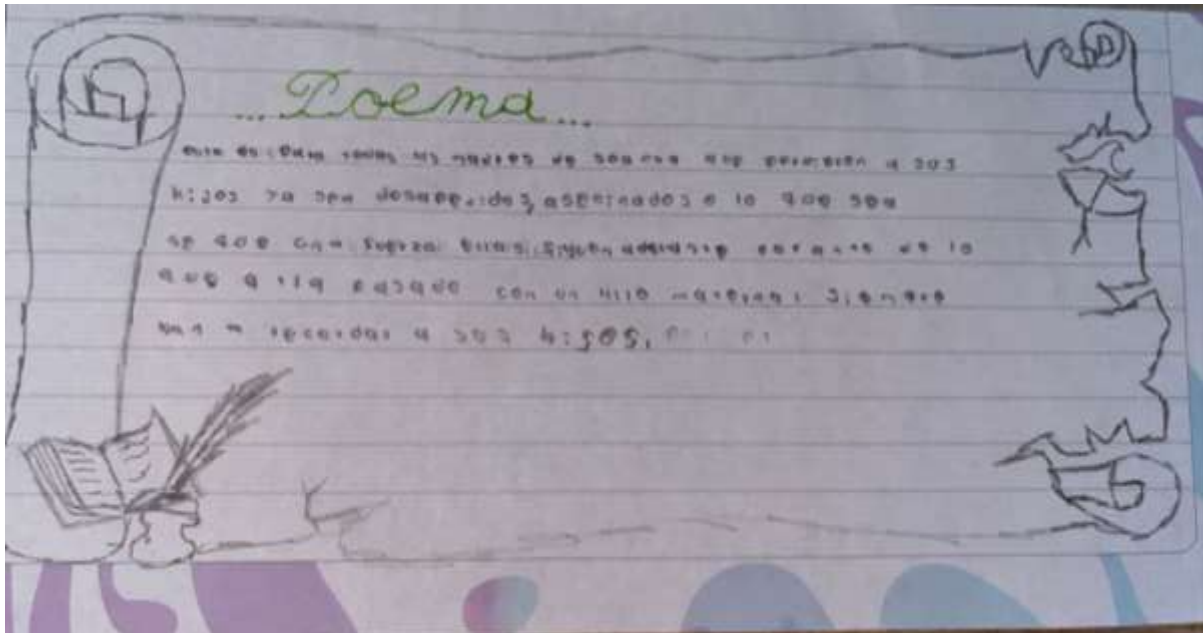 ...Poema...
este es para todas las madres de soacha que perdieron a sus
hijos ya sea desaparecidos, asesinados o lo que sea
se que con fuerza siguen adelante de lo
que alla pasado con un hilo maternal siempre
van a recordar a sus hijos,